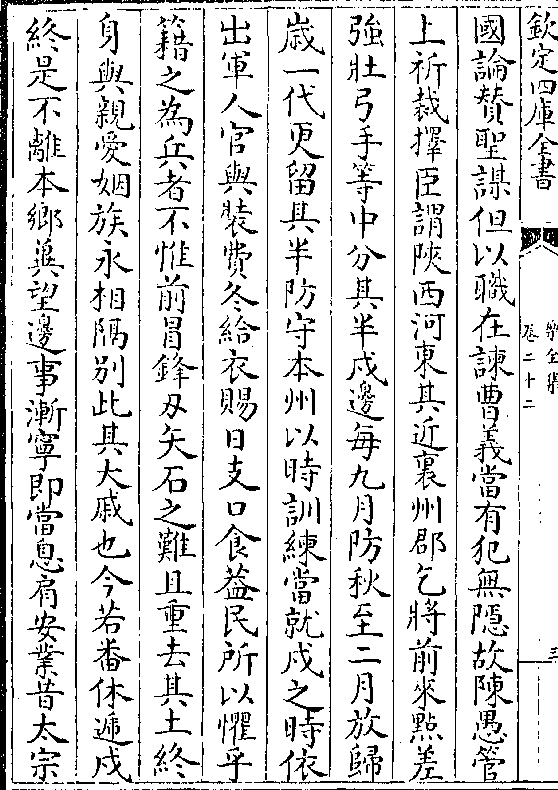 欽定四庫全書
樂全集
卷二十二
三
國論賛聖謀但以職在諫曹義當有犯無隱故陳愚管
上祈裁擇臣謂陝西河東其近裏州郡乞將前來㸃差
強壯弓手等中分其半戍邊每九月防秋至二月放歸
歳一代更留其半防守本州以時訓練當就戍之時依
出軍人官與裝費冬給衣賜日支口食葢民所以懼乎
籍之為兵者不惟前冒鋒刃矢石之難且重去其土終
身與親愛姻族永相隔别此其大戚也今若畨休遞戍
終是不離本鄉兾望邊事漸寧即當息肩安業昔太宗